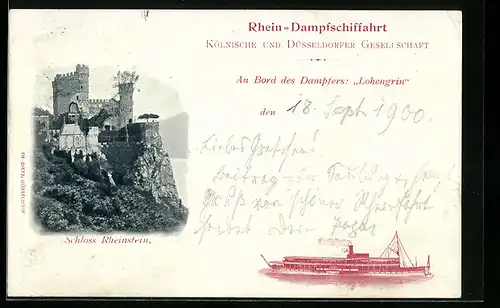 Rhein-Dampfschiffahrt
Kölnische und Düsseldorfer Gesellschaft
An Bord des Dampfers: „Lohengrin“
den 18. Sept 1900.
Liebes Gretchen!
Gruß von schöner Rheinfahrt
sendet Dein Papa
Schloss Rheinstein.